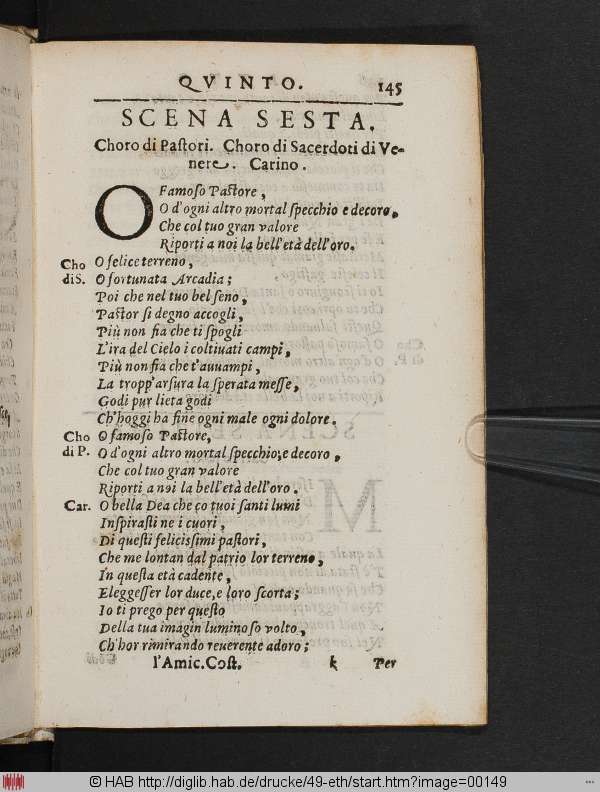 QVINTO. 145
SCENA SESTA.
Choro di Paſtori. Choro di Sacerdoti di Ve-
nere. Carino.
O Famoſo Paſtore,
O d'ogni altro mortal ſpecchio e decoro,
Che col tuo gran valore
Riporti a noi la bell'età dell'oro.
Cho O felice terreno,
di S. O fortunata Arcadia;
Poi che nel tuo bel ſeno,
Paſtor ſi degno accogli,
Più non fia che ti ſpogli
L'ira del Cielo i coltiuati campi,
Più non fia che t'auuampi,
La tropp'arſura la ſperata meſſe,
Godi pur lieta godi
Ch'hoggi ha fine ogni male ogni dolore.
Cho O famoſo Paſtore,
di P. O d'ogni altro mortal ſpecchio,e decoro,
Che col tuo gran valore
Riporti a noi la bell'età dell'oro.
Car. O bella Dea che cō tuoi ſanti lumi
Inſpiraſti ne i cuori,
Di queſti feliciſſimi paſtori,
Che me lontan dal patrio lor terreno,
In queſta età cadente,
Eleggeſſer lor duce,e loro ſcorta;
Io ti prego per queſto
Della tua imagin luminoſo volto,
Ch'hor rimirando reuerente adoro;
l'Amic.Coſt. k Per
© HAB http://diglib.hab.de/drucke/49-eth/start.htm?image=00149